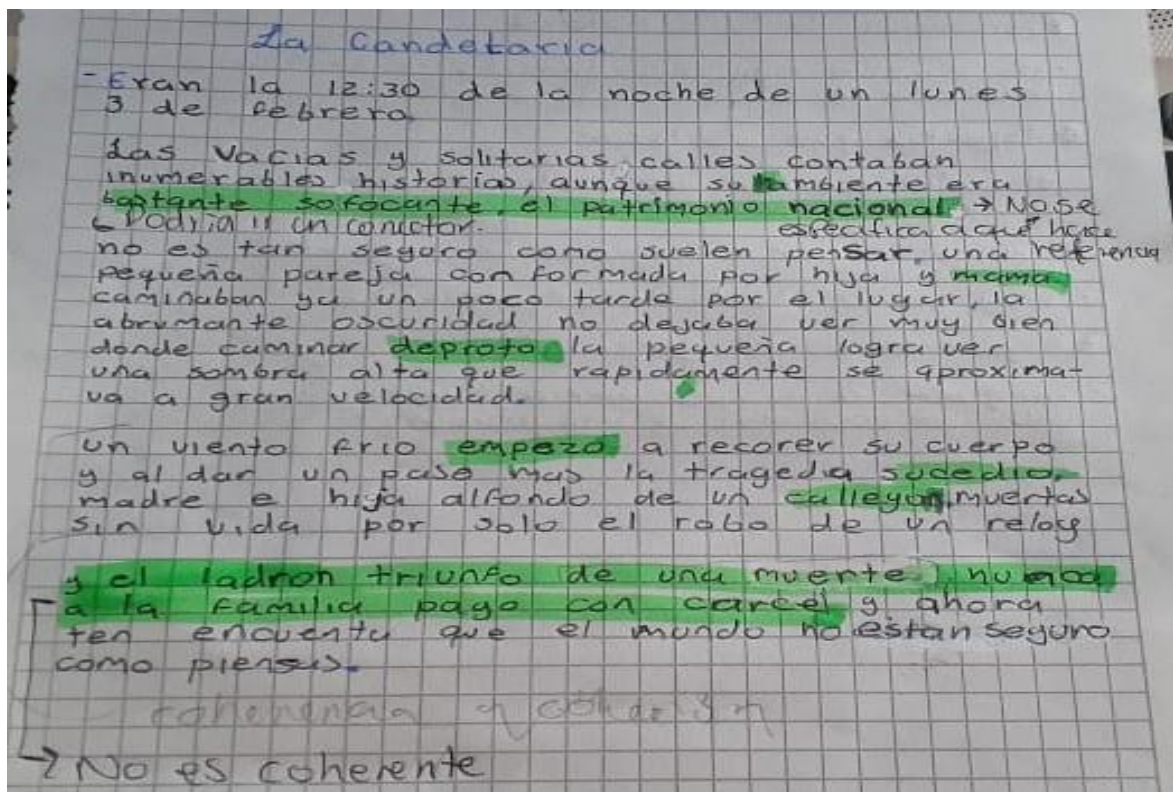 La Candelaria
- Eran la 12:30 de la noche de un lunes
3 de febrero
Las vacias y solitarias calles contaban
inumerables historias, aunque su ambiente era
bastante sofocante, el patrimonio nacional. → No se
especifica a qué hace
referencia
↳ Podría ir un conector.
no es tan seguro como suelen pensar, una
pequeña pareja conformada por hija y mama
caminaban ya un poco tarde por el lugar, la
abrumante oscuridad no dejaba ver muy bien
donde caminar deproto la pequeña logra ver
una sombra alta que rapidamente se aproxima-
va a gran velocidad.
un viento frio empezo a recorer su cuerpo
y al dar un paso mas la tragedia sucedio,
madre e hija alfondo de un calleyon, muertas
sin vida por solo el robo de un reloy
y el ladron triunfo de una muerte,
a la familia pago con carcel y ahora
ten encuenta que el mundo no estan seguro
como piensas.
→ No es coherente